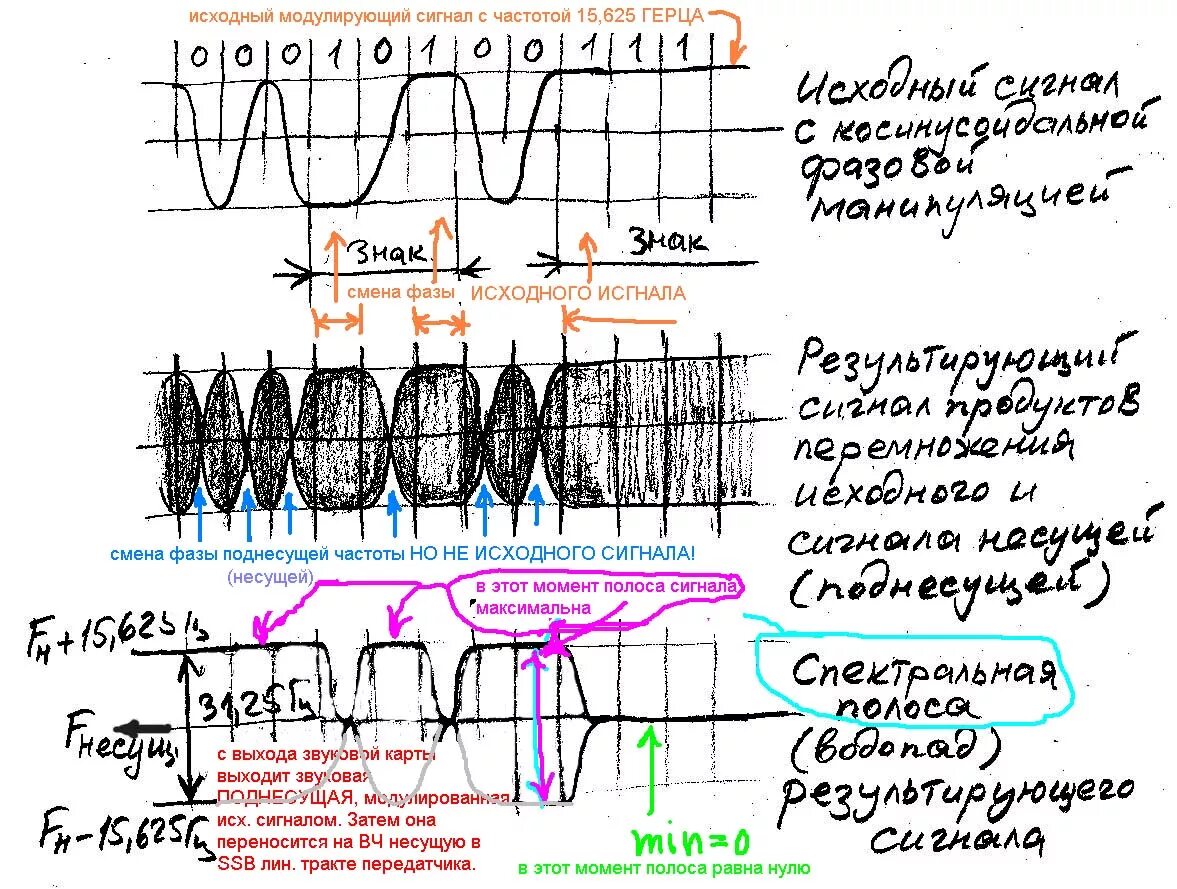 исходный модулирующий сигнал с частотой 15,625 ГЕРЦА
0 0 0 1 0 1 0 0 1 1 1
Исходный сигнал
с косинусоидальной
фазовой
манипуляцией
Знак
Знак
смена фазы ИСХОДНОГО ИСГНАЛА
Результирующий
сигнал продуктов
перемножения
исходного и
сигнала несущей
(поднесущей)
смена фазы поднесущей частоты НО НЕ ИСХОДНОГО СИГНАЛА!
(несущей)
в этот момент полоса сигнала
максимальна
Fн+15,625Гц
31,25Гц
Fнесущ.
Fн-15,625Гц
с выхода звуковой карты
выходит звуковая
ПОДНЕСУЩАЯ, модулированная
исх. сигналом. Затем она
переносится на ВЧ несущую в
SSB лин. тракте передатчика.
min=0
в этот момент полоса равна нулю
Спектральная
полоса
(водопад)
результирующего
сигнала